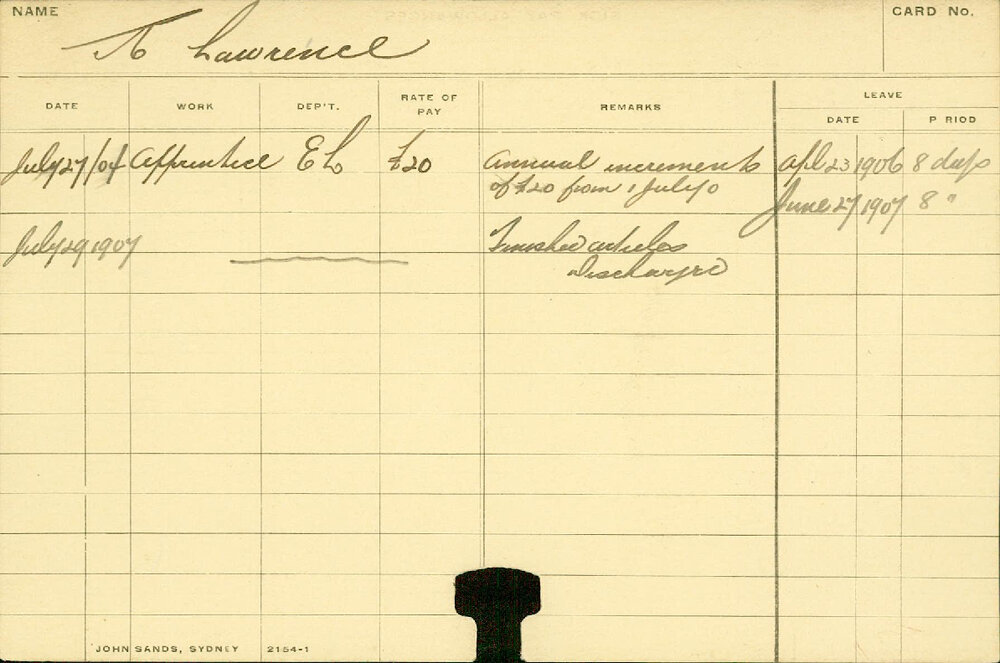 NAME
CARD No.
Lawrence
DATE WORK DEP'T. RATE OF PAY REMARKS LEAVE
DATE P RIOD
July 27/04 Apprentice EL £20 Annual increments Apl 23 1906 8 days
of £20 from 1 July 0 June 27 1907 8 "
July 29 1907 Finished articles
Discharged
JOHN SANDS, SYDNEY 2154-1